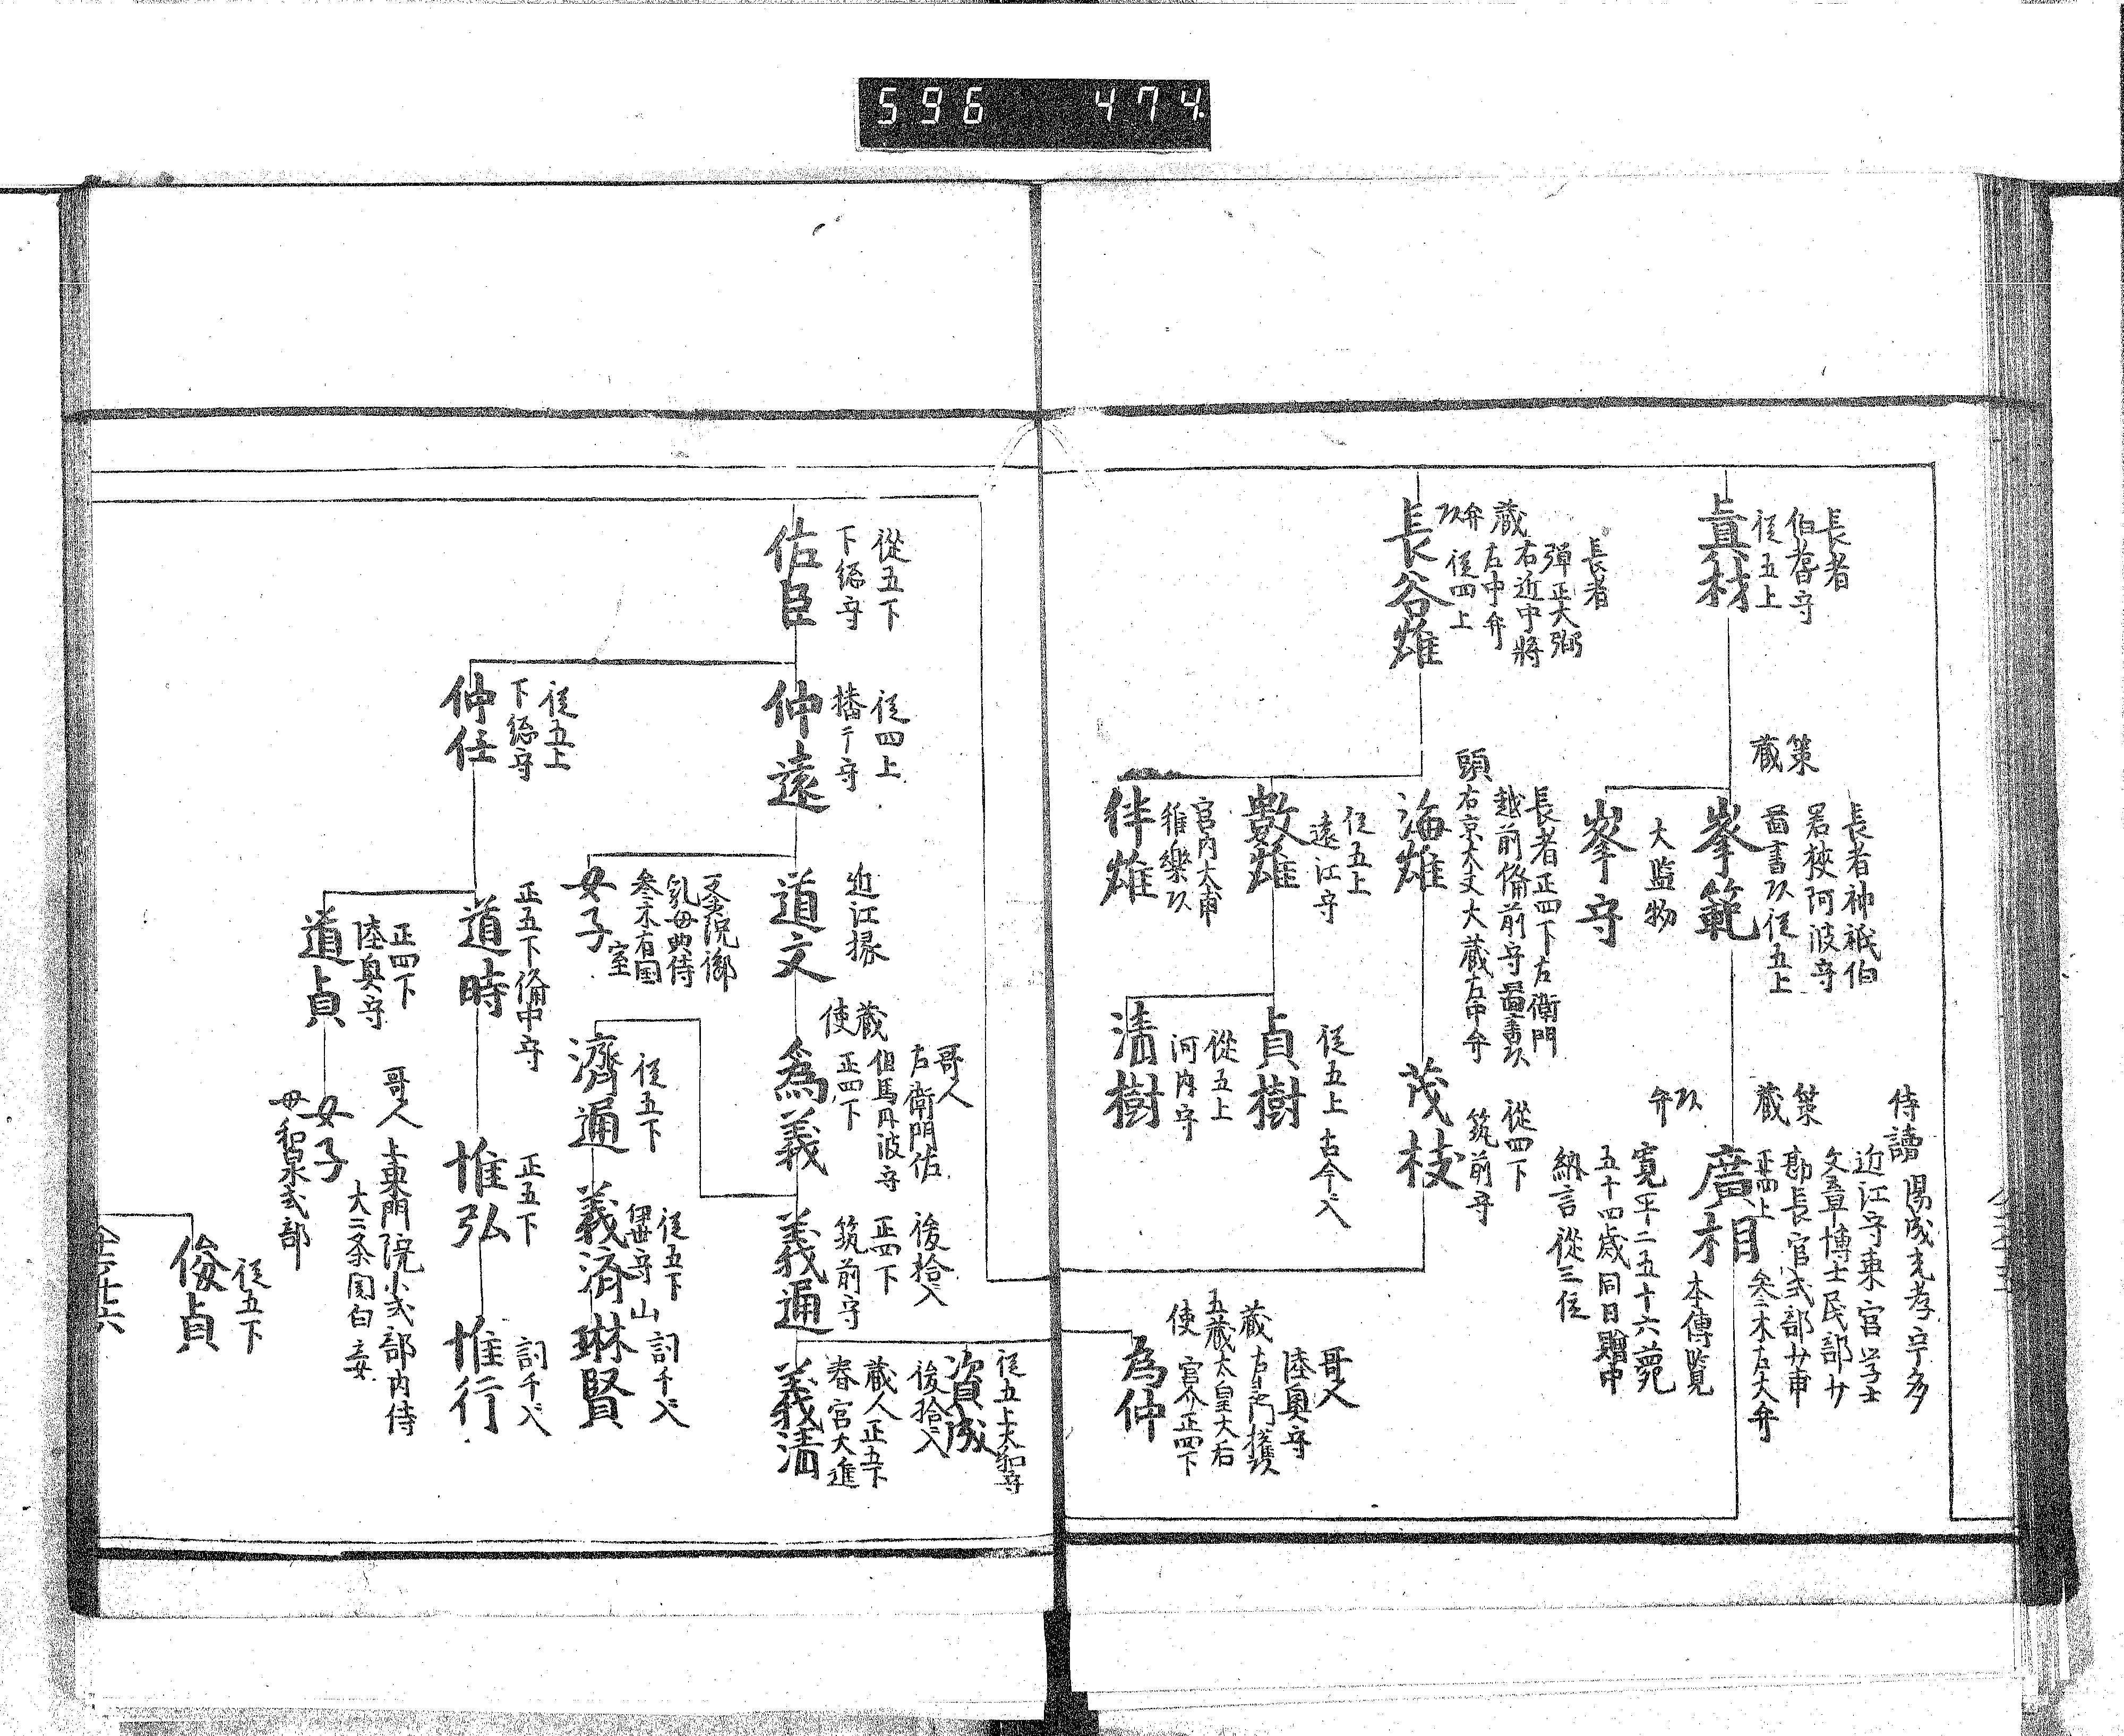 596 474.
長者
伯耆守
従五上
真材
策
蔵
長者神祇伯
若狭阿波守
図書頭従五上
峯範
大監物
峯守
侍讀 陽成光孝宇多
近江守東宮学士
文章博士民部少
勘長官式部少甫
正四上 参木左大弁
策
蔵
廣相 本傳覧
寛平二五十六薨
五十四歳同日贈中
納言従三位
長者
弾正大弼
右近中将
蔵 左中弁
従四上
長谷雄
長者正四下左衛門
越前備前守図書頭
頭 右京大夫大蔵右中弁
海雄
従四下
筑前守
茂枝
従五上
遠江守
数雄
宮内大甫
雅樂頭
伴雄
従五上 古今人
貞樹
従五上
河内守
清樹
哥人
陸奥守
蔵
五蔵太皇大后
使 宮介正四下
為仲
従五下
下総守
佐臣
従四上
播广守
仲遠
従五上
下総守
仲任
近江掾
道文
一条院御
乳母典侍
参木有国
室
女子
正五下備中守
道時
正四下
陸奥守
道貞
哥人
左衛門佐
但馬丹波守
蔵
使 正四下
為義
後拾人
正四下
筑前守
義通
従五上大和守
資成
後拾人
蔵人正五下
春宮大進
義清
従五下
済通
従五下
守
義済
山 詞千人
琳賢
正五下
惟弘
詞千人
惟行
哥人 上東門院小式部内侍
大二条関白妾
女子
母和泉式部
従五下
俊貞